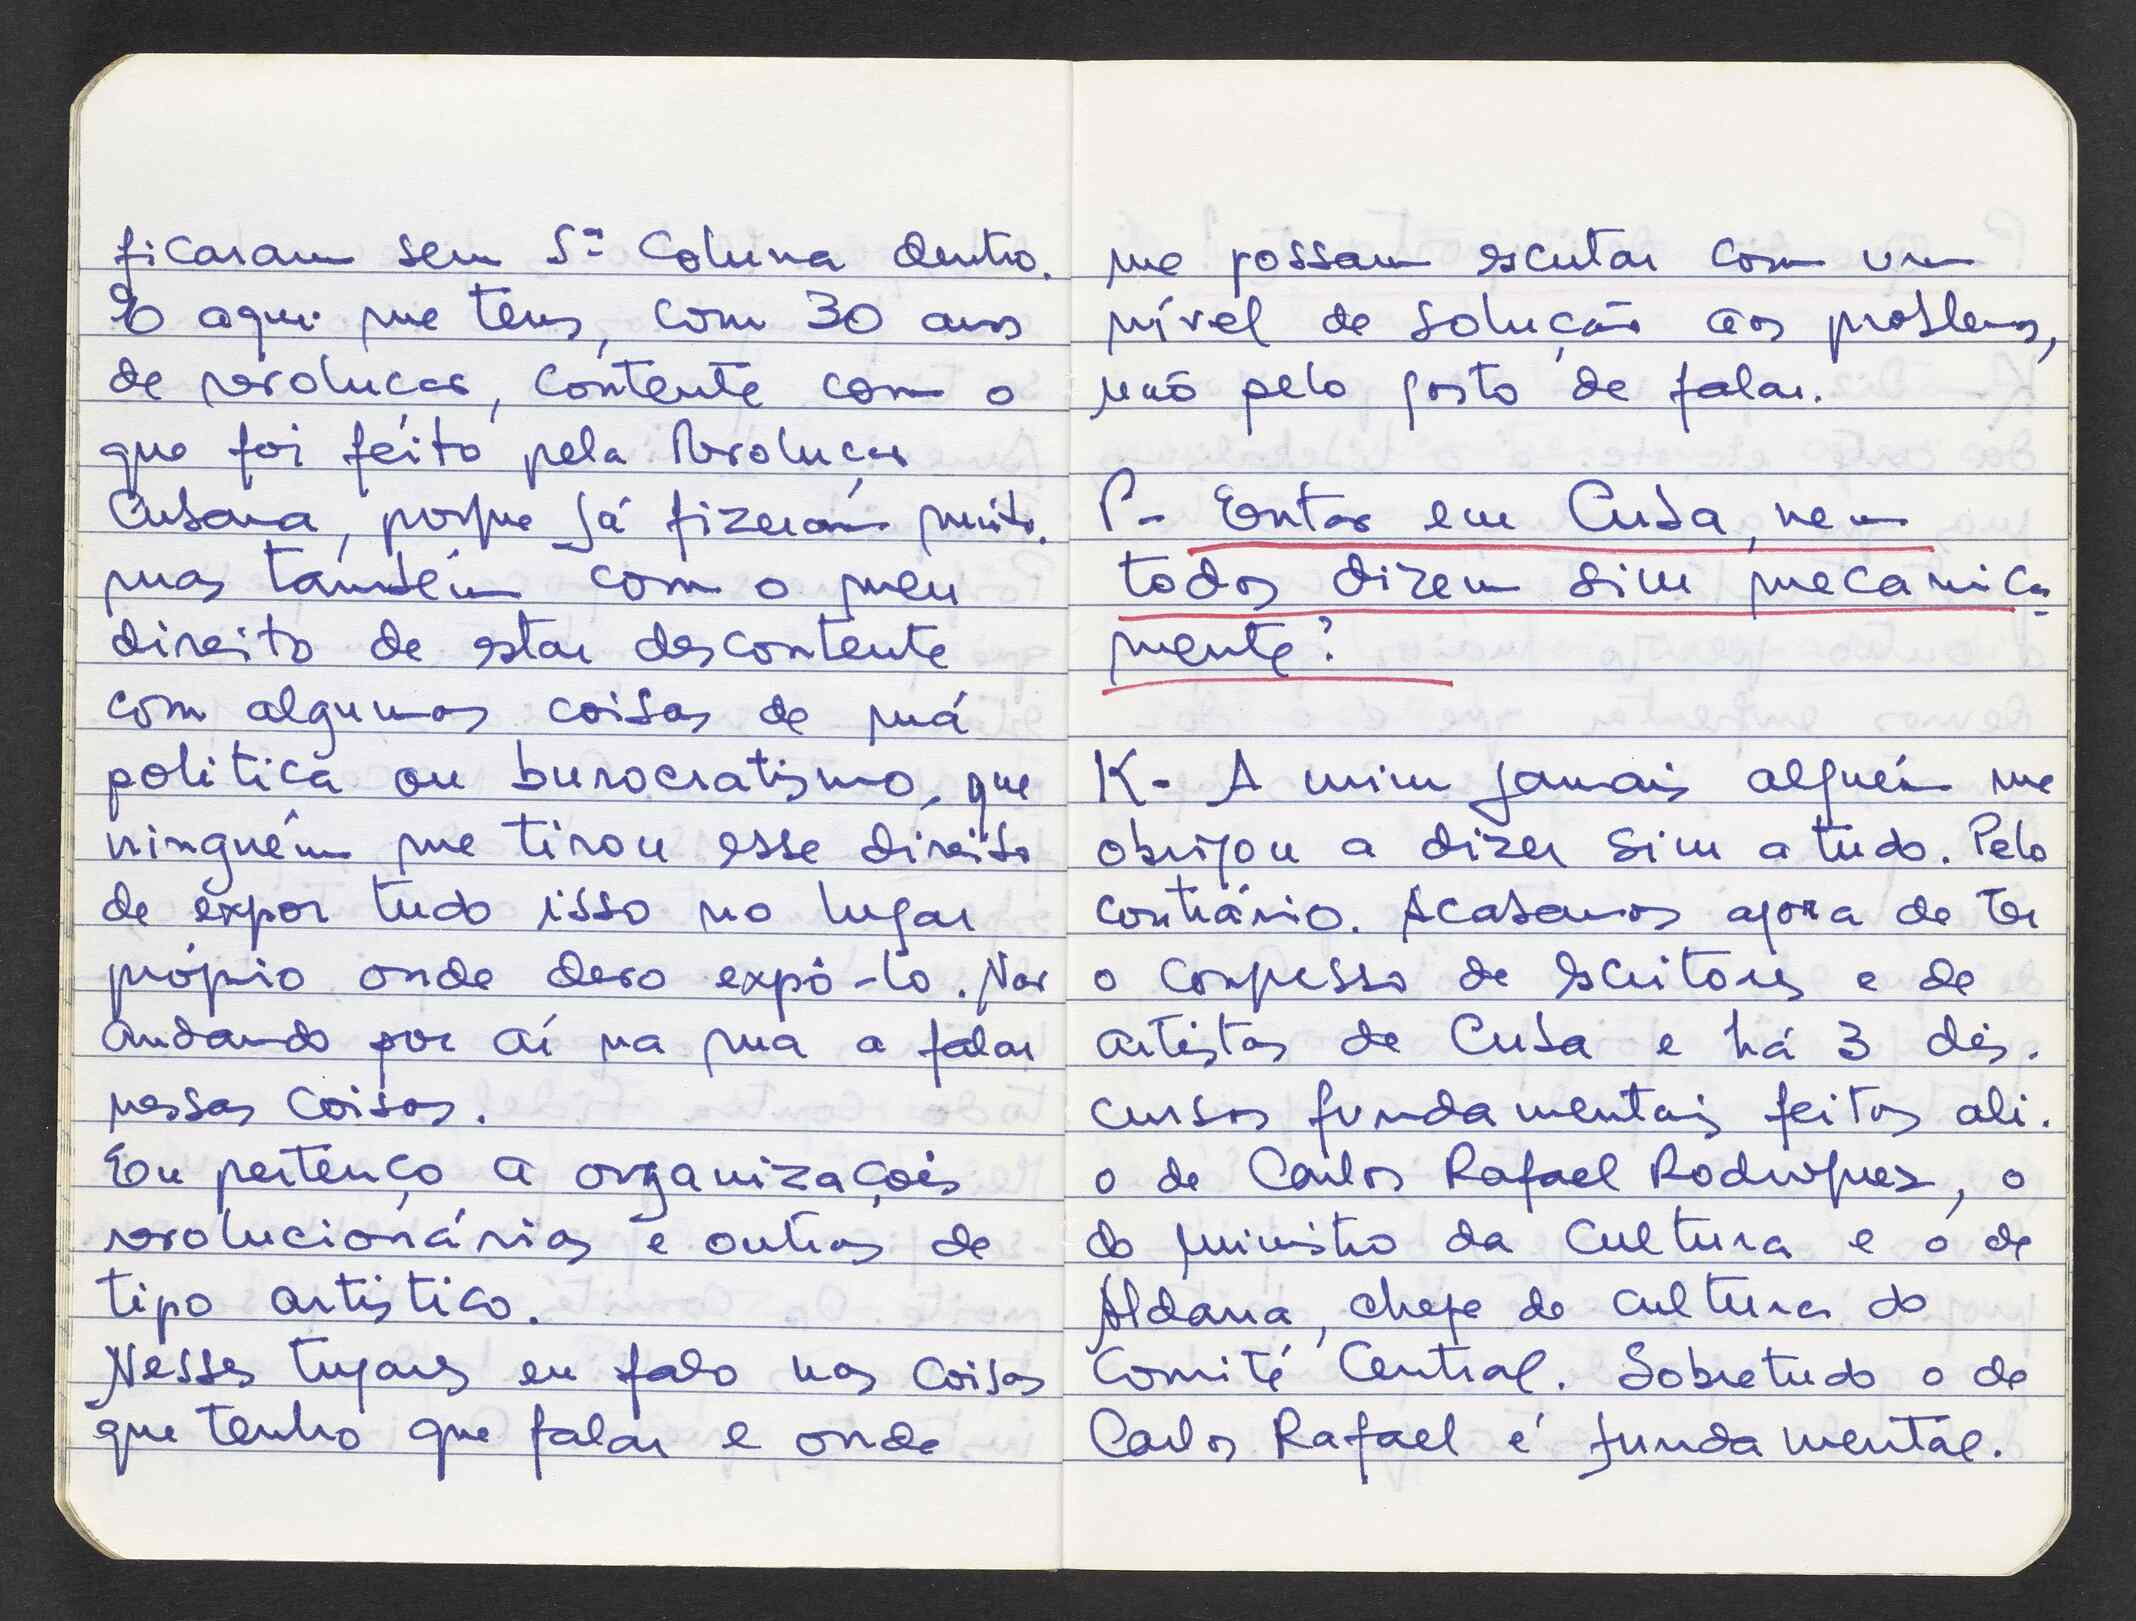 ficaram sem 5ª Coluna dentro.
E aqui me tens, com 30 anos
de revolução, contente com o
que foi feito pela Revolução
Cubana, porque já fizeram muito.
mas também com o meu
direito de estar descontente
com algumas coisas de má
politica ou burocratismo, que
ninguém me tirou esse direito
de expor tudo isso no lugar
próprio onde devo expô-lo. Não
andando por aí na rua a falar
nessas coisas.
Eu pertenço a organizações
revolucionárias e outras de
tipo artistico.
Nesses lugares eu falo nas coisas
que tenho que falar e onde
me possam escutar com um
nível de solução aos problemas,
não pelo gosto de falar.
P- Então em Cuba, nem
todos dizem sim mecanica-
mente?
K- A mim jamais alguém me
obrigou a dizer sim a tudo. Pelo
contrário. Acabamos agora de ter
o Congresso de Escritores e de
artistas de Cuba e há 3 dis-
cursos fundamentais feitos ali.
o de Carlos Rafael Rodriguez, o
do ministro da Cultura e o de
Aldana, chefe de cultura do
Comité Central. Sobretudo o de
Carlos Rafael é fundamental.